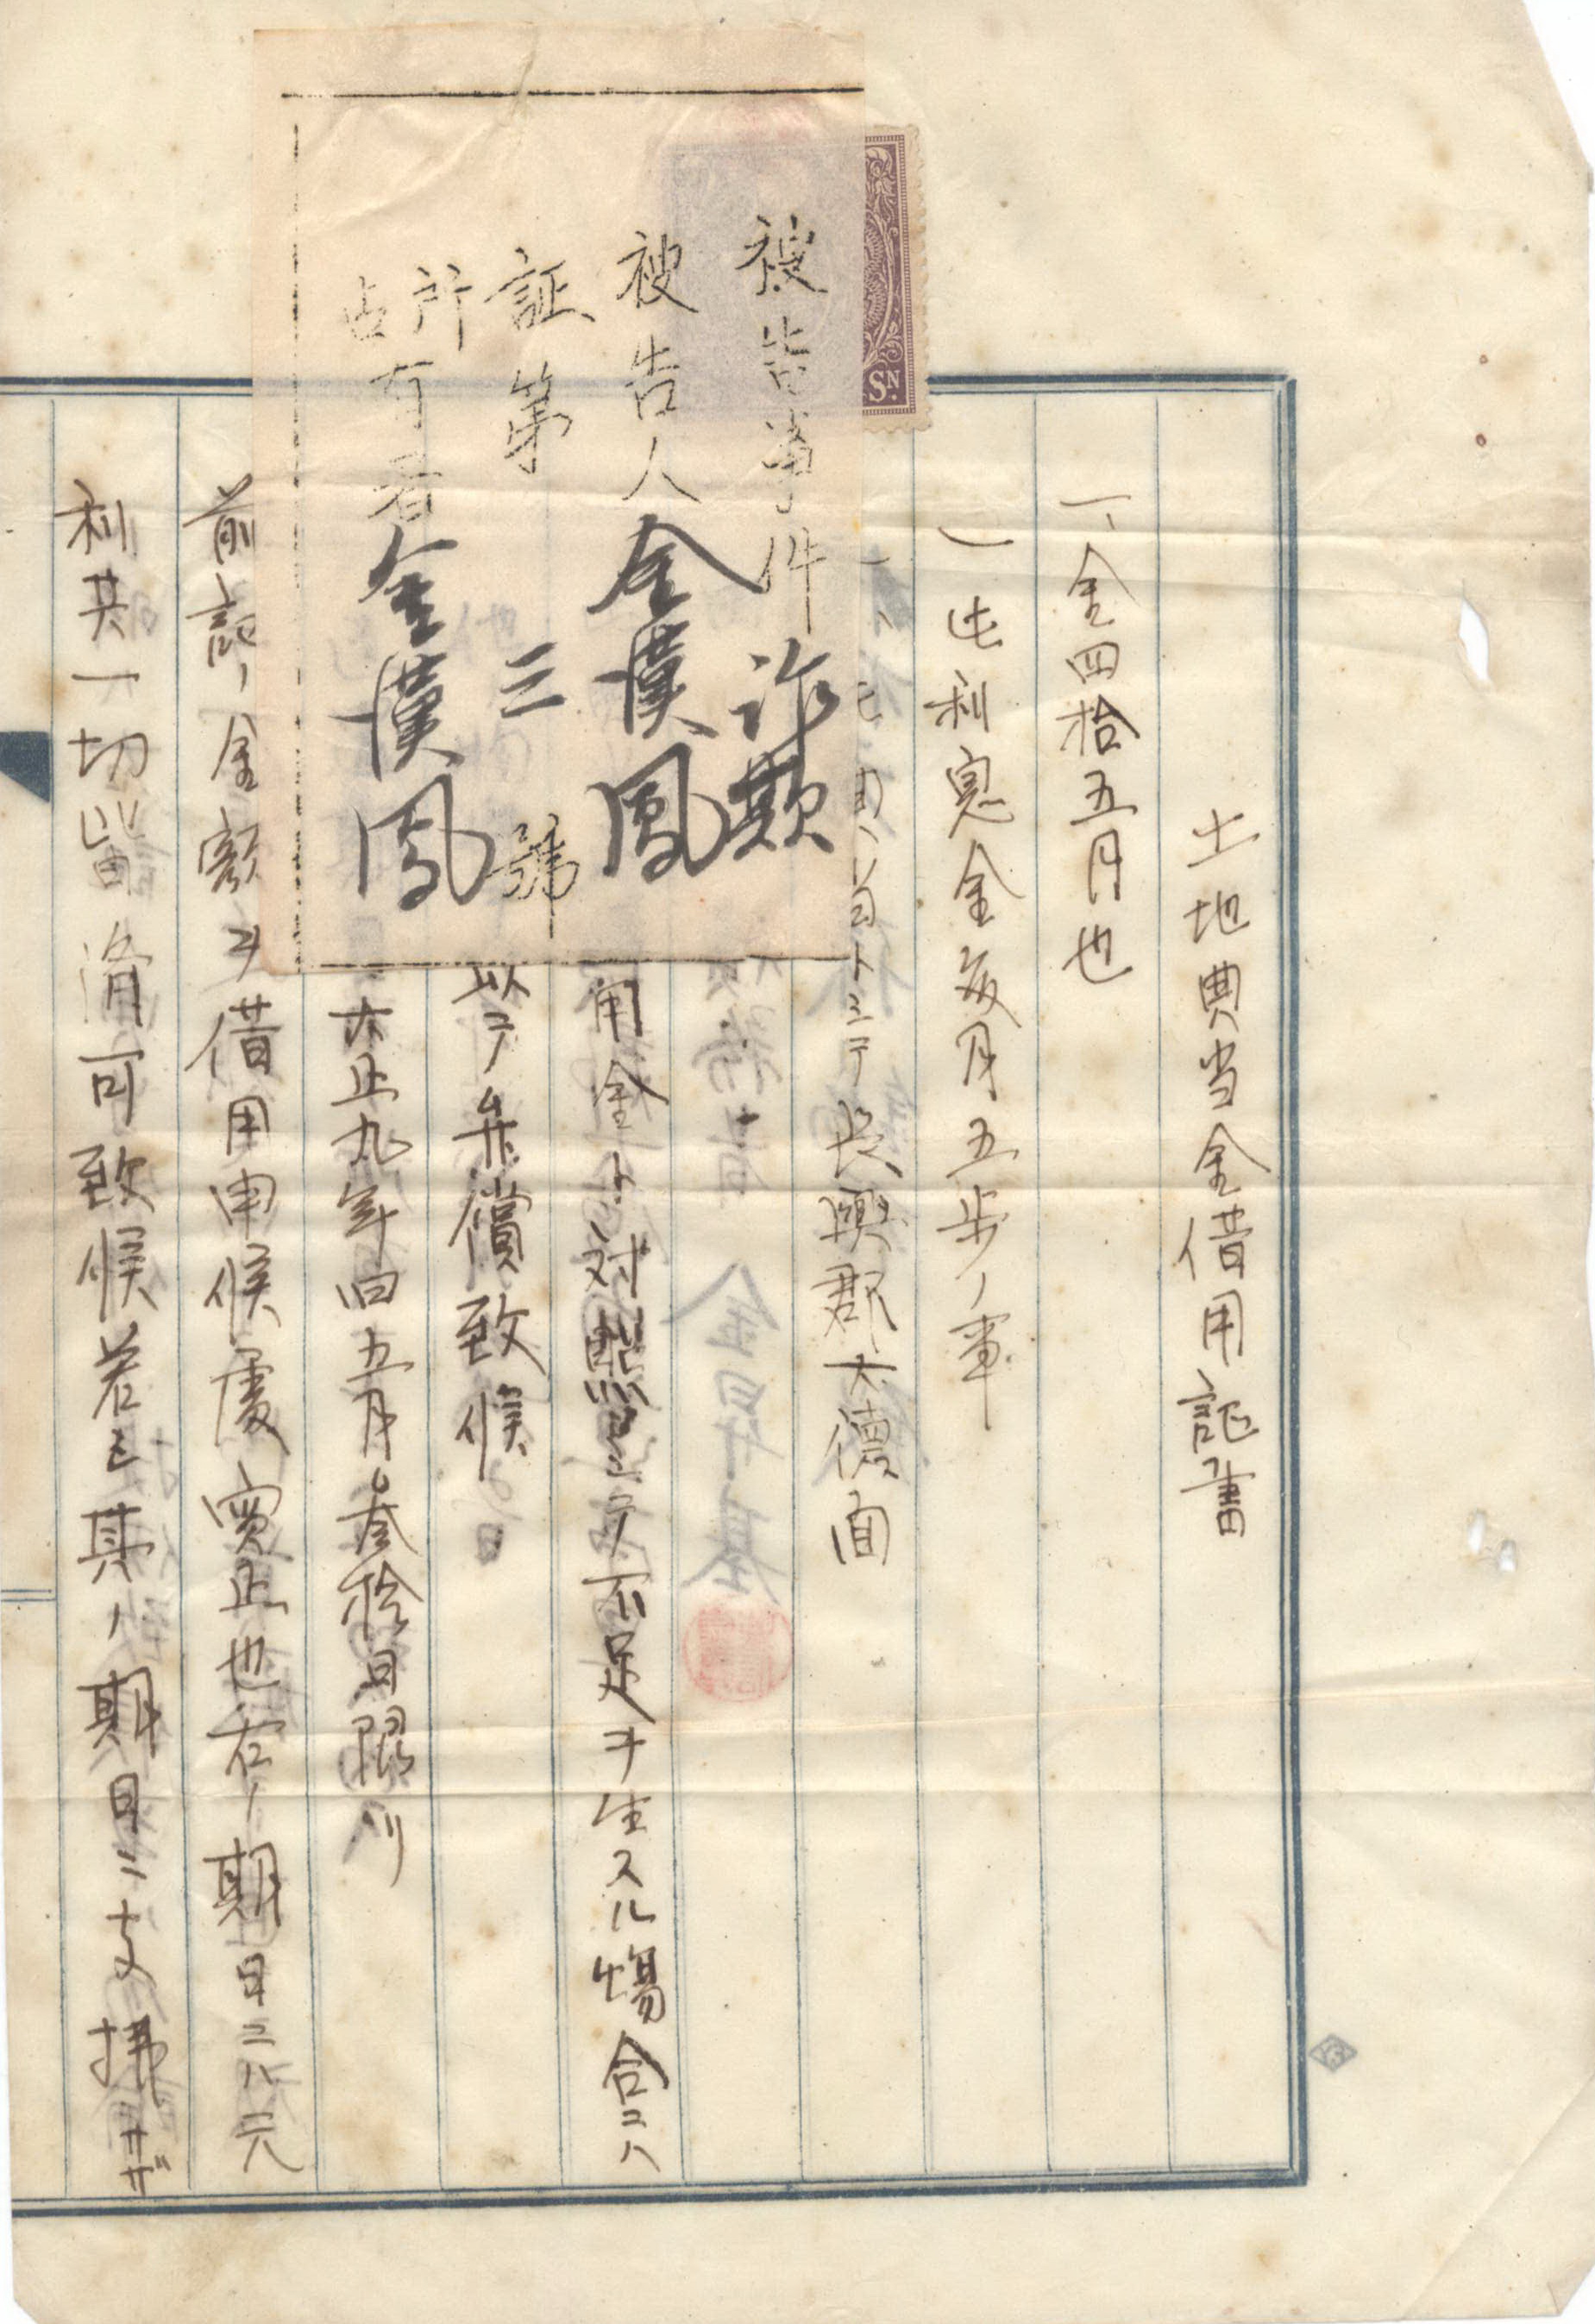 土地典当金借用証書
一、金四拾五円也
一 此利息金每月五歩ノ事
目トシテ長興郡大德面
用金ト対照シテ不足ヲ生スル場合ニハ
以テ弁償致候
大正九年旧五月参拾日限リ
前記ノ金額ヲ借用申候處實正也右ノ期日ニハ元
利共一切皆済可致候若モ其ノ期日ニ支拂ザ
被告事件 詐欺
被告人 金漢鳳
証第 三 號
所有者 金漢鳳
SN.